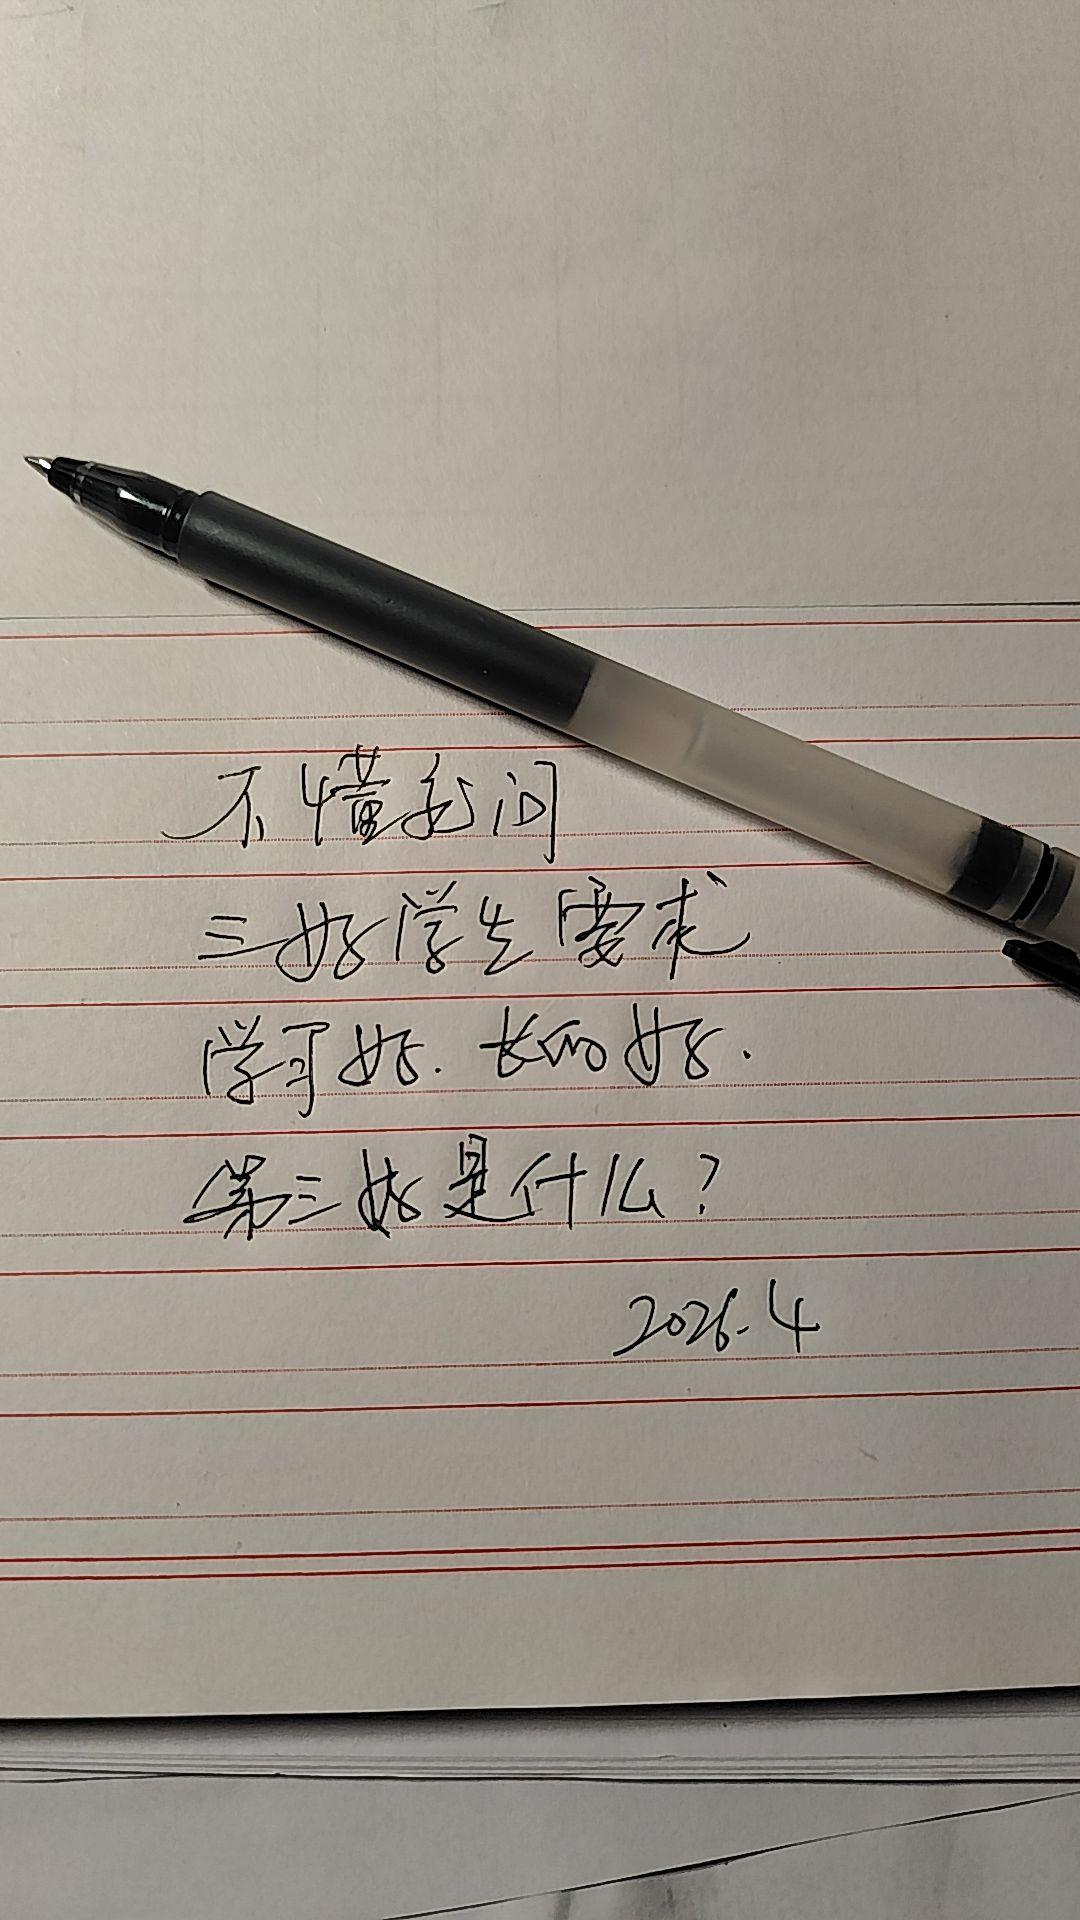 不懂就问
三好学生要求
学习好. 长的好.
第三好是什么?
2026.4